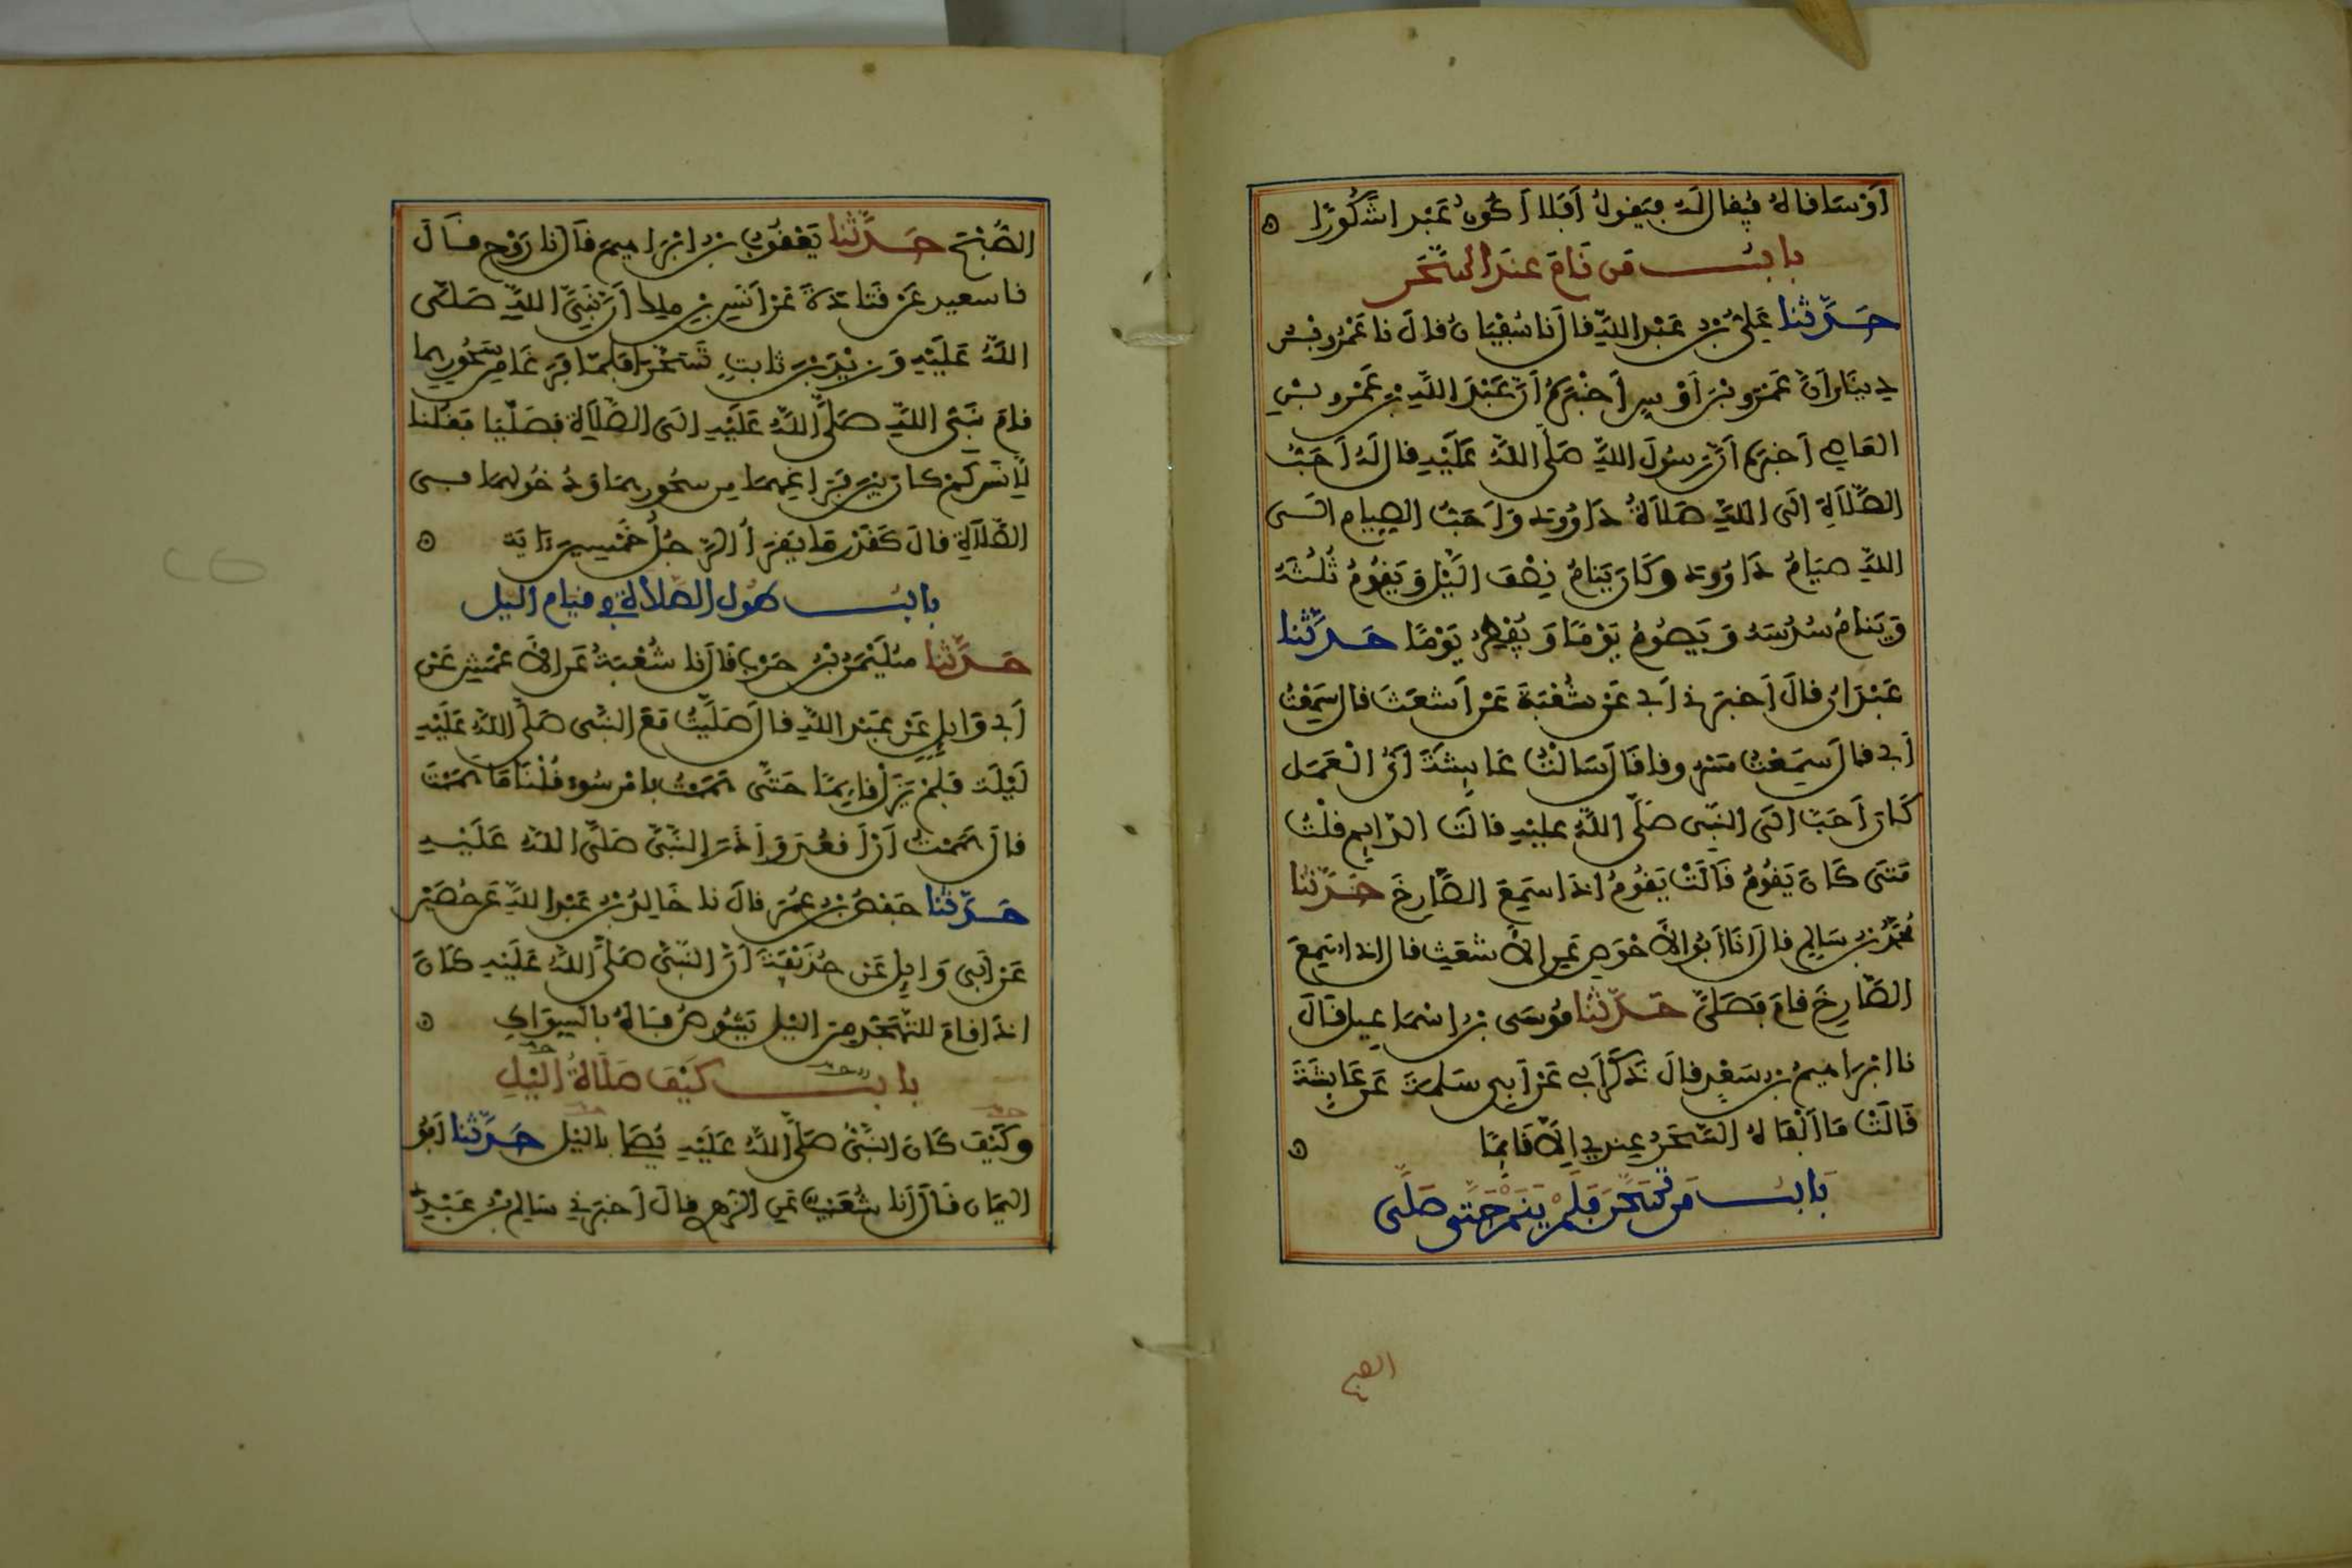 أَوْ سَاقَاهُ فَيُقَالُ لَهُ فَيَقُولُ أَفَلَا أَكُونُ عَبْدًا شَكُورًا
بابُ مَن نَامَ عِنْدَ السَّحَرِ
حَدَّثَنَا عَلِيُّ بْنُ عَبْدِ اللَّهِ قَالَ نَا سُفْيَانُ قَالَ نَا عَمْرُو بْنُ
دِينَارٍ أَنَّ عَمْرَو بْنَ أَوْسٍ أَخْبَرَهُ أَنَّ عَبْدَ اللَّهِ بْنَ عَمْرِو بْنِ
العَاصِ أَخبَرَهُ أَنَّ رَسُولَ اللَّهِ صَلَّى اللَّهُ عَلَيْهِ قَالَ لَهُ أَحَبُّ
الصَّلَاةِ إِلَى اللَّهِ صَلَاةُ دَاوُودَ وَأَحَبُّ الصِّيَامِ إِلَى
اللَّهِ صِيَامُ دَاوُودَ وَكَانَ يَنَامُ نِصْفَ الَّيْلِ وَيَقُومُ ثُلُثَهُ
وَيَنَامُ سُدُسَهُ وَيَصُومُ يَوْمًا وَيُفْطِرُ يَوْمًا حَدَّثَنَا
عَبْدَانُ قَالَ أَخبَرَنِي أَبِي عَنْ شُعْبَةَ عَنْ أَشْعَثَ قَالَ سَمِعْتُ
أَبِي قَالَ سَمِعْتُ مَسْرُوقًا قَالَ سَأَلْتُ عَائِشَةَ أَيُّ الْعَمَلِ
كَانَ أَحَبَّ إِلَى النَّبِيِّ صَلَّى اللَّهُ عَلَيْهِ قَالَتِ الدَّائِمُ قُلْتُ
مَتَى كَانَ يَقُومُ قَالَتْ يَقُومُ إِذَا سَمِعَ الصَّارِخَ حَدَّثَنَا
مُحَمَّدُ بْنُ سَالِمٍ قَالَ أَنَا أَبُو الأَحْوَصِ عَنِ الأَشْعَثِ قَالَ إِذَا سَمِعَ
الصَّارِخَ قَامَ فَصَلَّى حَدَّثَنَا مُوسَى بْنُ إِسْمَاعِيلَ قَالَ
نَا إِبْرَاهِيمُ بْنُ سَعْدٍ قَالَ ذَكَرَ أَبِي عَنْ أَبِي سَلَمَةَ عَنْ عَائِشَةَ
قَالَتْ مَا أَلْفَاهُ السَّحَرُ عِندِي إِلَّا نَائِمًا
بَابُ مَن تَسَحَّرَ فَلَمْ يَنَمْ حَتَّى صَلَّى
الصبح
الصُّبْحَ حَدَّثَنَا يَعْقُوبُ بْنُ إِبْرَاهِيمَ قَالَ نَا رَوْحٌ قَالَ
نَا سَعِيدٌ عَنْ قَتَادَةَ عَنْ أَنَسِ بْنِ مَلِكٍ أَنَّ نَبِيَّ اللَّهِ صَلَّى
اللَّهُ عَلَيْهِ وَزَيْدَ بْنَ ثَابِتٍ تَسَحَّرَا فَلَمَّا فَرَغَا مِن سَحُورِهِمَا
قَامَ نَبِيُّ اللَّهِ صَلَّى اللَّهُ عَلَيْهِ إِلَى الصَّلَاةِ فَصَلَّيَا فَقُلْنَا
لِأَنَسٍ كَمْ كَانَ بَيْنَ فَرَاغِهِمَا مِن سَحُورِهِمَا وَدُخُولِهِمَا فِي
الصَّلَاةِ قَالَ كَقَدْرِ مَا يَقْرَأُ الرَّجُلُ خَمْسِينَ آيَةً
بَابُ طُولِ الصَّلَاةِ فِي قِيَامِ الَّيْلِ
حَدَّثَنَا سُلَيْمَنُ بْنُ حَرْبٍ قَالَ نَا شُعْبَةُ عَنِ الأَعْمَشِ عَنْ
أَبِي وَايِلٍ عَنْ عَبْدِ اللَّهِ قَالَ صَلَّيْتُ مَعَ النَّبِيِّ صَلَّى اللَّهُ عَلَيْهِ
لَيْلَةً فَلَمْ يَزَلْ قَائِمًا حَتَّى هَمَمْتُ بِأَمْرِ سُوءٍ قُلْنَا مَا هَمَمْتَ
قَالَ هَمَمْتُ أَنْ أَقْعُدَ وَأَذَرَ النَّبِيَّ صَلَّى اللَّهُ عَلَيْهِ
حَدَّثَنَا حَفْصُ بْنُ عُمَرَ قَالَ نَا خَالِدُ بْنُ عَبْدِ اللَّهِ عَنْ حُصَيْنٍ
عَنْ أَبِي وَايِلٍ عَنْ حُذَيْفَةَ أَنَّ النَّبِيَّ صَلَّى اللَّهُ عَلَيْهِ كَانَ
إِذَا قَامَ لِلتَّهَجُّدِ مِنَ الَّيْلِ يَشُوصُ فَاهُ بِالسِّوَاكِ
بَابُ كَيْفَ صَلَاةُ الَّيْلِ
وَكَيْفَ كَانَ النَّبِيُّ صَلَّى اللَّهُ عَلَيْهِ يُصَلِّي بِالَّيْلِ حَدَّثَنَا أَبُو
اليَمَانِ قَالَ أَنَا شُعَيْبٌ عَنِ الزُّهْرِي قَالَ أَخبَرَنِي سَالِمُ بْنُ عَبْدِ